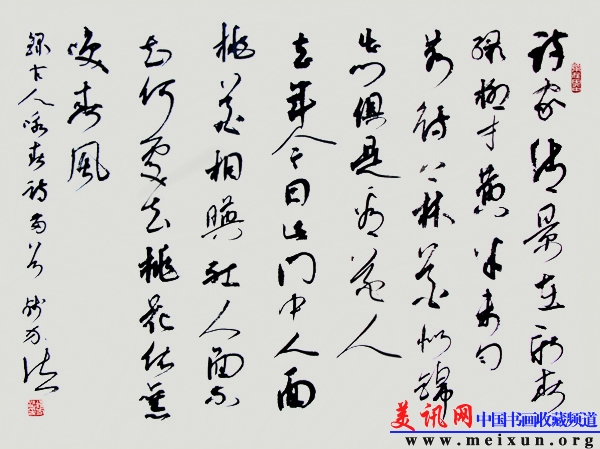 诗家清景在新春
绿柳才黄半未匀
若待上林花似锦
出门俱是看花人
去年今日此门中人面
桃花相暎红人面不
知何处去桃花依旧
咲春风
录古人咏春诗两首
美讯网 中国书画收藏频道
www.meixun.org